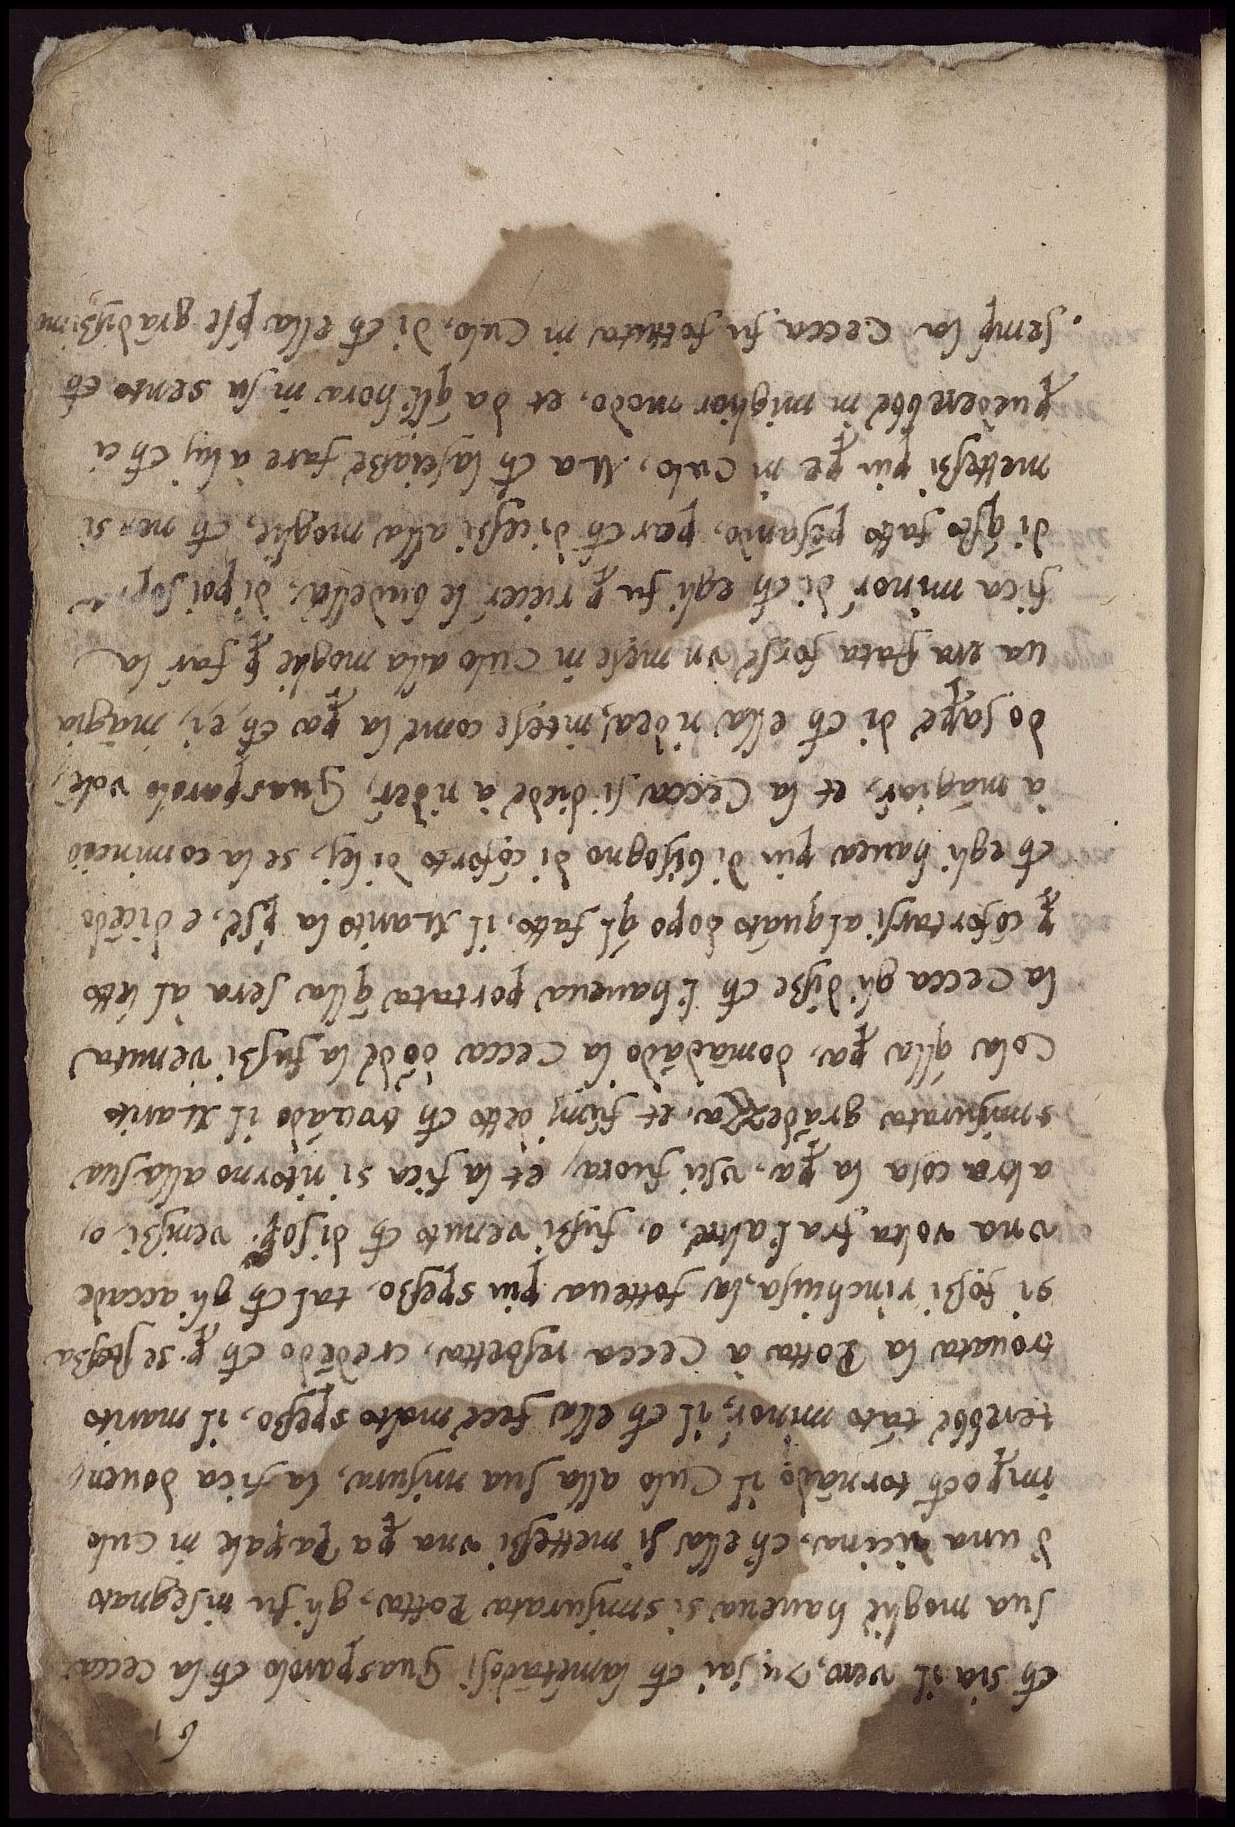 61
ch̃ sia il vero, Tu sai ch̃ lamẽtãdosi Guasparolo ch̃ la Cecca
sua moglie haueua si smisurata Potta, gli fu insegnato
d'una vicina, ch̃ ella si mettessi vna pa papale in Culo
impoch̃ tornãdo il Culo alla sua misura, la fica douen,
terebbe tãto minor̃, il ch̃ ella fece molto spesso, il marito
trouata la Potta à Cecca ristretta, credẽdo ch̃ p se stessa
si fossi rinchiusa, la fotteua piu spesso, tal ch̃ gli accade
vna volta fra l'altre, o, fussi venuto ch̃ disop̃ venissi o,
altra cosa la pa, vsci fuora, et la fica si ritorno alla sua
smisurata grãdezza, et fuvvj otto ch̃ trouãdo il Marito
Cola q̃lla pa, domãdãdo la Cecca dõde la fussi venuta
la Cecca gli disse ch̃ l'haueua portata q̃lla sera al letto
p cõfortarsi alquãto dopo q̃l fatto, il Marito la p̃se, e dicẽdo
ch̃ egli hauea piu di bisogno di cõforto di lej, se la comincio
à mãgiar̃, et la Cecca si diede à rider̃, Guasparolo volẽ,
do sap̃e di ch̃ ella ridea, intese come la pa ch̃ ei, mãgia
ua era stata forse vn mese in Culo alla moglie p far la
fica minor̃ di ch̃ egli fu p recer̃ le budella, di poi sop̃
di q̃sto fatto pẽsando, par ch̃ dicessi alla moglie, ch̃ non si
mettessi piu pe in Culo, Ma ch̃ lasciasse fare à luj ch̃ ci
puederebbe in miglior modo, et da q̃ll'hora in su sento ch̃
semp̃ la Cecca fu fottuta in Culo, di ch̃ ella p̃se grãdissimo